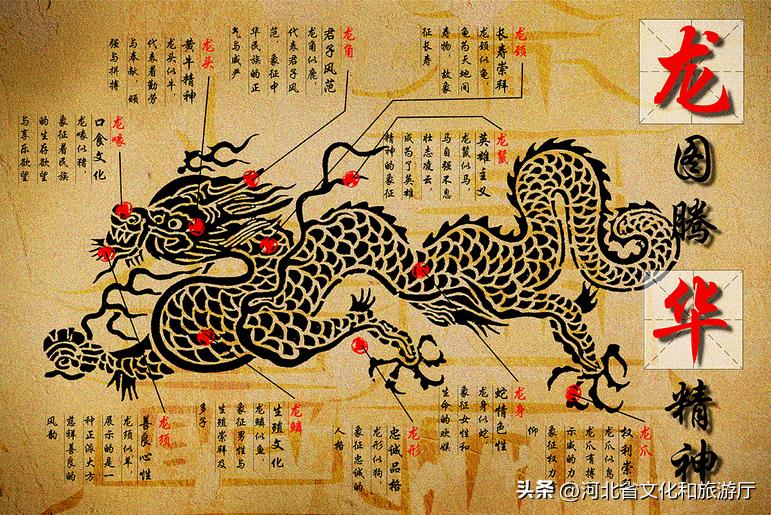 龙图腾华精神
龙颈
长寿崇拜
龙颈似龟
龟为天地间
寿物，故象
征长寿
龙角
君子风范
龙角似鹿，
代表君子风
范，象征中
华民族的正
气与威严
龙头
黄牛精神
龙头似牛，
代表着勤劳
与奉献，顽
强与拼搏
龙鬣
英雄主义
龙鬣似马，
马自强不息
壮志凌云，
成为了英雄
精神的象征
龙喙
口食文化
龙喙似猪，
象征着民族
的生存欲望
与享乐欲望
龙爪
权利崇
龙爪似鸟
龙爪有搏
示威的力
象征权力
仰
龙身
蛇情色性
龙身似蛇
象征女性和
生命的欢娱
龙形
忠诚品格
龙形似狗，
象征忠诚的
人格
龙鳞
生殖文化
龙鳞似鱼，
象征男性与
生殖崇拜及
多子
龙须
善良心性
龙须似羊，
展示的是一
种正派大方
慈祥善良的
风韵
头条 @河北省文化和旅游厅